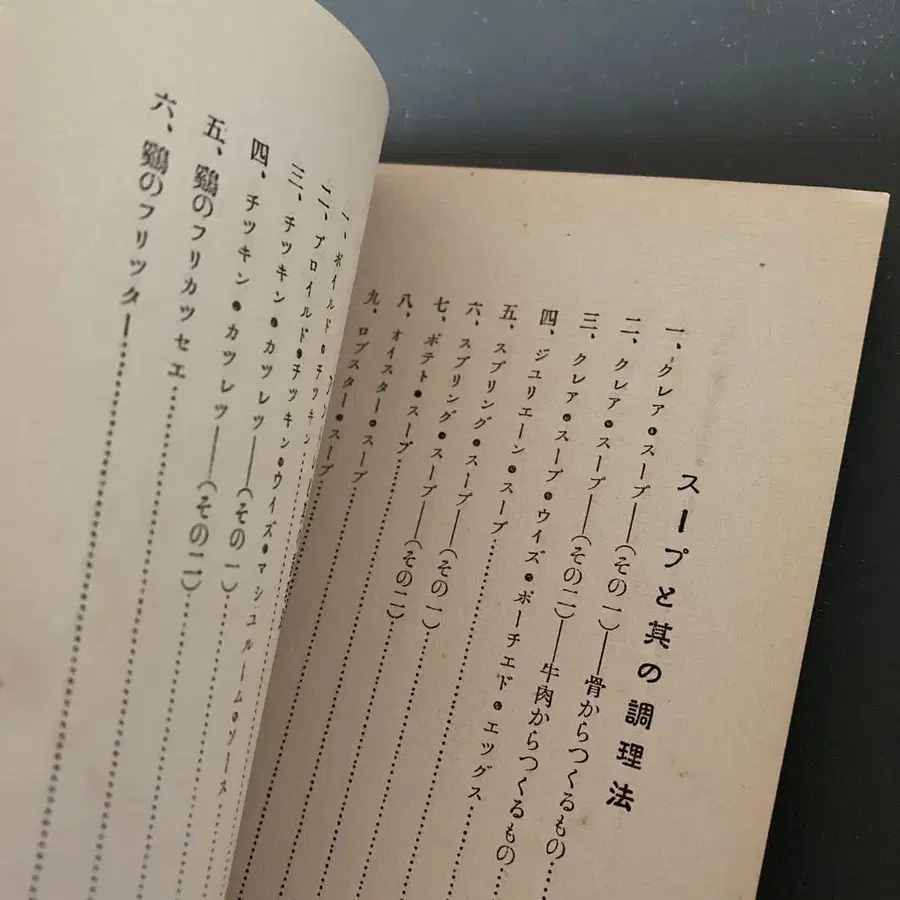 スープと其の調理法
一、クレア・スープ――(その一)――骨からつくるもの……
二、クレア・スープ――(その二)――牛肉からつくるもの……
三、クレア・スープ・ウイズ・ポーチエド・エツグス……
四、ジュリエーン・スープ……
五、スプリング・スープ――(その一)……
六、スプリング・スープ――(その二)……
七、ポテト・スープ……
八、オイスター・スープ……
九、ロブスター・スープ……
一、ボイルド・
二、ブロイルド・チツキン・ウイズ・マシユルーム・ソース
三、チツキン・カツレツ――(その一)……
四、チツキン・カツレツ――(その二)……
五、鷄のフリカツセエ……
六、鷄のフリツター……